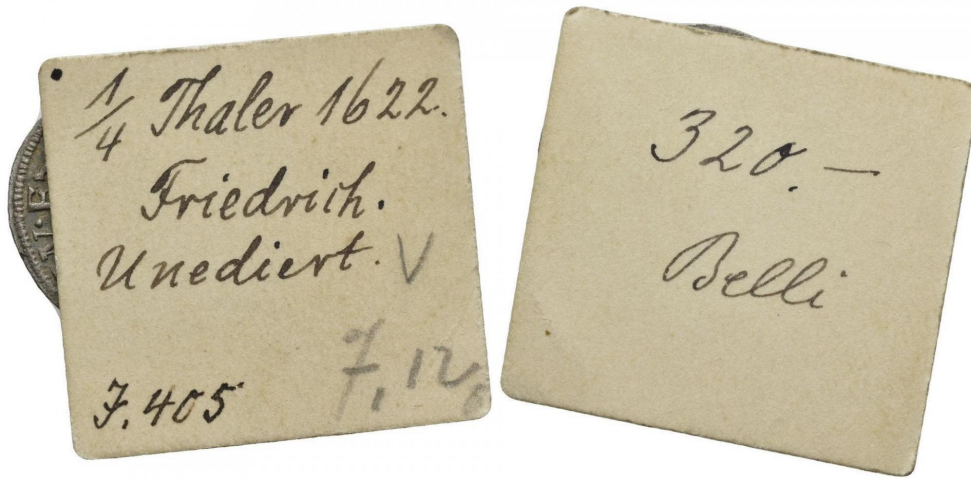 1/4 Thaler 1622.
Friedrich.
Unediert. V
F. 405
320.—
Belli